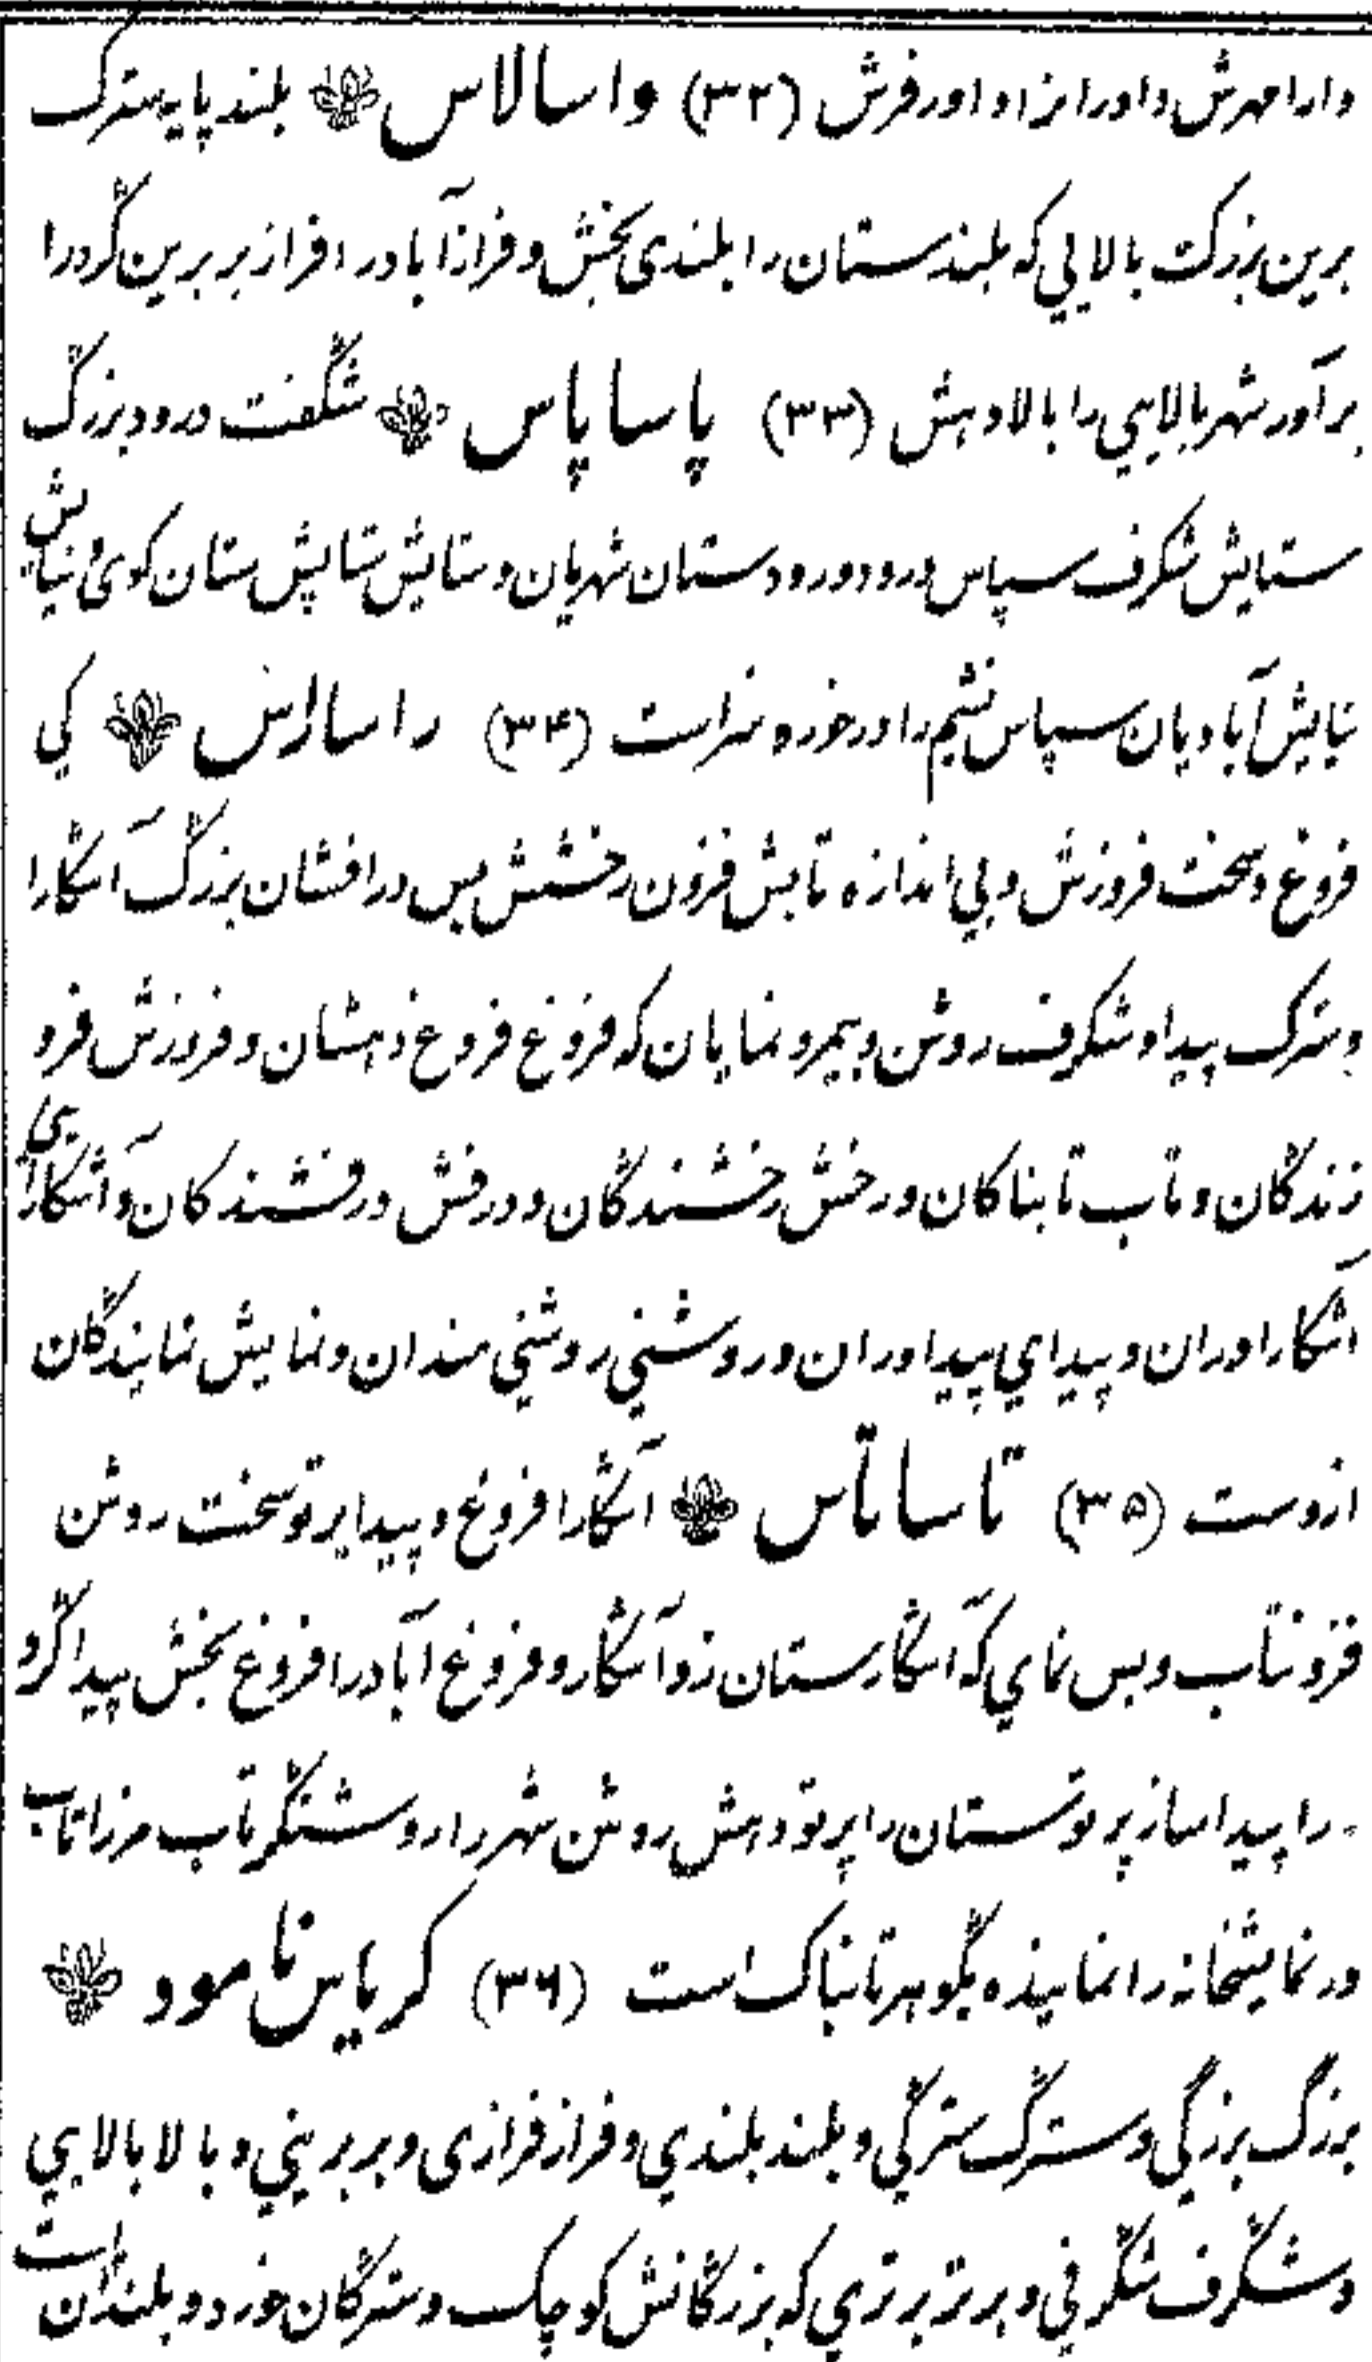 دارا مهرش داور ایزاد اور فرش (۳۲) واسالاس بلند پایه سترک
برین بزرگ بالایی که بلندستان را بلندی بخش و فراز آباد را فراز بر برین گرد را
برآور شهر بالایی را بالا دهش (۳۳) پاساپاس شگفت درود بزرگ
ستایش شکرف سپاس درود درودستان شهریان و ستایش ستایش ستان کوی و نیایش
نیایش آبادیان سپاس نشیم را در خور و سزاست (۳۴) راساراس کی
فروغ و سخت فروزش و بی اندازه تابش فزون رخشش بس درافشان بزرگ آشکارا
و سترک پیدا و شکرف روشن و بیمر و نمایان که فروغ فروغ دهشان و فروزش فرو
زندگان و تاب تابناکان و رخش رخشندگان و درفش درفشندگان و آشکارایی
آشکاراوران و پیدای پیداوران و روشنی روشنی مندان و نمایش نمایندگان
ازوست (۳۵) تاساتاس آشکارا فروغ و پیدا پرتو سخت روشن
فزونتاب و بس نمای که آشکارستان زو آشکار و فروغ آباد را فروغ بخش پیدا گرد
را پیدا ساز پرتوستان را پرتو دهش روشن شهر را روشنگر تاب مرز را تاب
ور نمایشخانه را نماینده بگوهر تابناک است (۳۶) کریاس نامود
بزرگ بزرگی و سترگ سترگی و بلند بلندی و فراز فرازی و بر برینی و بالا بالایی
و شگرف شگرفی و برتر برتری که بزرگانش کوچک و سترگان خورد و بلندان است